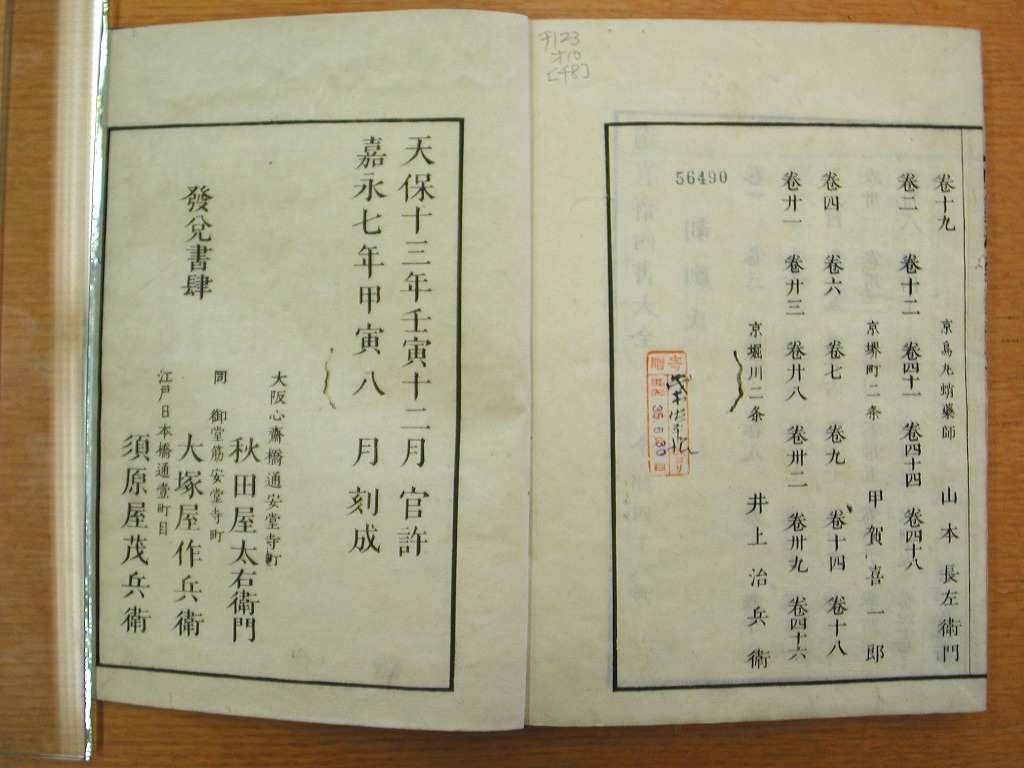 巻十九
京烏丸蛸藥師 山本長左衛門
巻二八 巻十二 巻四十一 巻四十四 巻四十八
京堺町二条 甲賀喜一郎
巻四 巻六 巻七 巻九 巻十四 巻十八
巻廿一 巻廿三 巻廿八 巻卅二 巻卅九 巻四十六
京堀川二条 井上治兵衛
56490
寄贈
35.6.30
千123
オ10
[48]
天保十三年壬寅十二月 官許
嘉永七年甲寅八 月刻成
發兌書肆
大阪心齋橋通安堂寺町
秋田屋太右衛門
同 御堂筋安堂寺町
大塚屋作兵衛
江戸日本橋通壹町目
須原屋茂兵衛